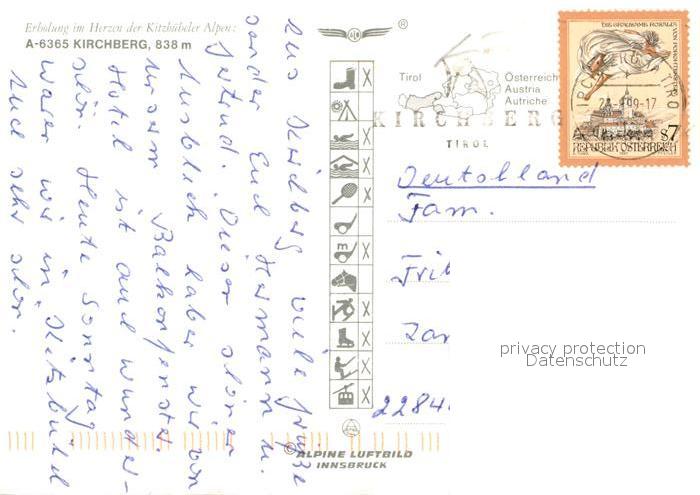 Erholung im Herzen der Kitzbüheler Alpen:
A-6365 KIRCHBERG, 838 m
®
Tirol
Österreich
Austria
Autriche
KIRCHBERG
TIROL
DIE GRAUSAME ROSALIA
VON FORCHTENSTEIN
-9-17
S7
REPUBLIK ÖSTERREICH
Aus Kirchberg viele Grüße
sendet Euch Hermann u.
Gertrud. Dieser schöne
Ausblick haben wir von
unserm Balkonfenster.
Hotel ist auch wunder-
schön. Heute Sonntag
waren wir in Kitzbühel
auch sehr schön.
m
X
X
X
X
X
X
X
X
X
X
Deutschland
Fam.
Fri
Zar
2284
privacy protection
Datenschutz
© ALPINE LUFTBILD
INNSBRUCK